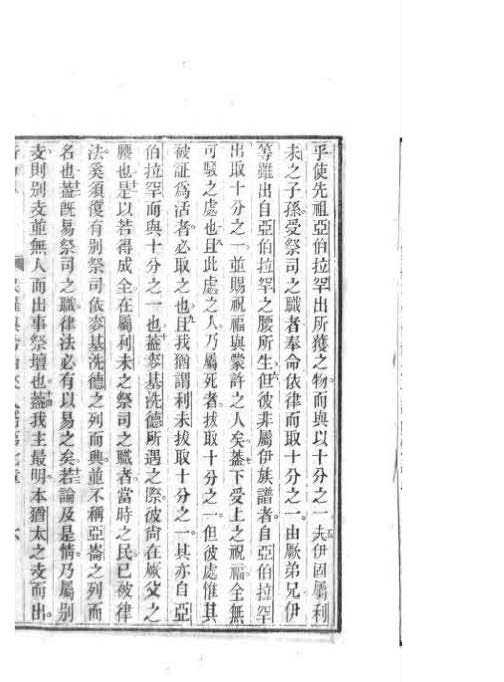 乎使先祖亞伯拉罕出所獲之物而與以十分之一夫伊固屬利
未之子孫受祭司之職者奉命依律而取十分之一由厥弟兄伊
等雖出自亞伯拉罕之腰所生但彼非屬伊族譜者自亞伯拉罕
出取十分之一並賜祝福與蒙許之人矣蓋下受上之祝福全無
可駁之處也且此處之人乃屬死者拔取十分之一但彼處惟其
被証爲活者必取之也且我猶謂利未拔取十分之一其亦自亞
伯拉罕而與十分之一也蓋麥基洗德所遇之際彼尙在厥父之
腰也是以若得成全在屬利未之祭司之職者當時之民已被律
法奚須復有別祭司依麥基洗德之列而興並不稱亞崙之列而
名也蓋旣易祭司之職律法必有以易之矣若論及是情乃屬別
支則別支並無人而出事祭壇也蓋我主最明本猶太之支而出